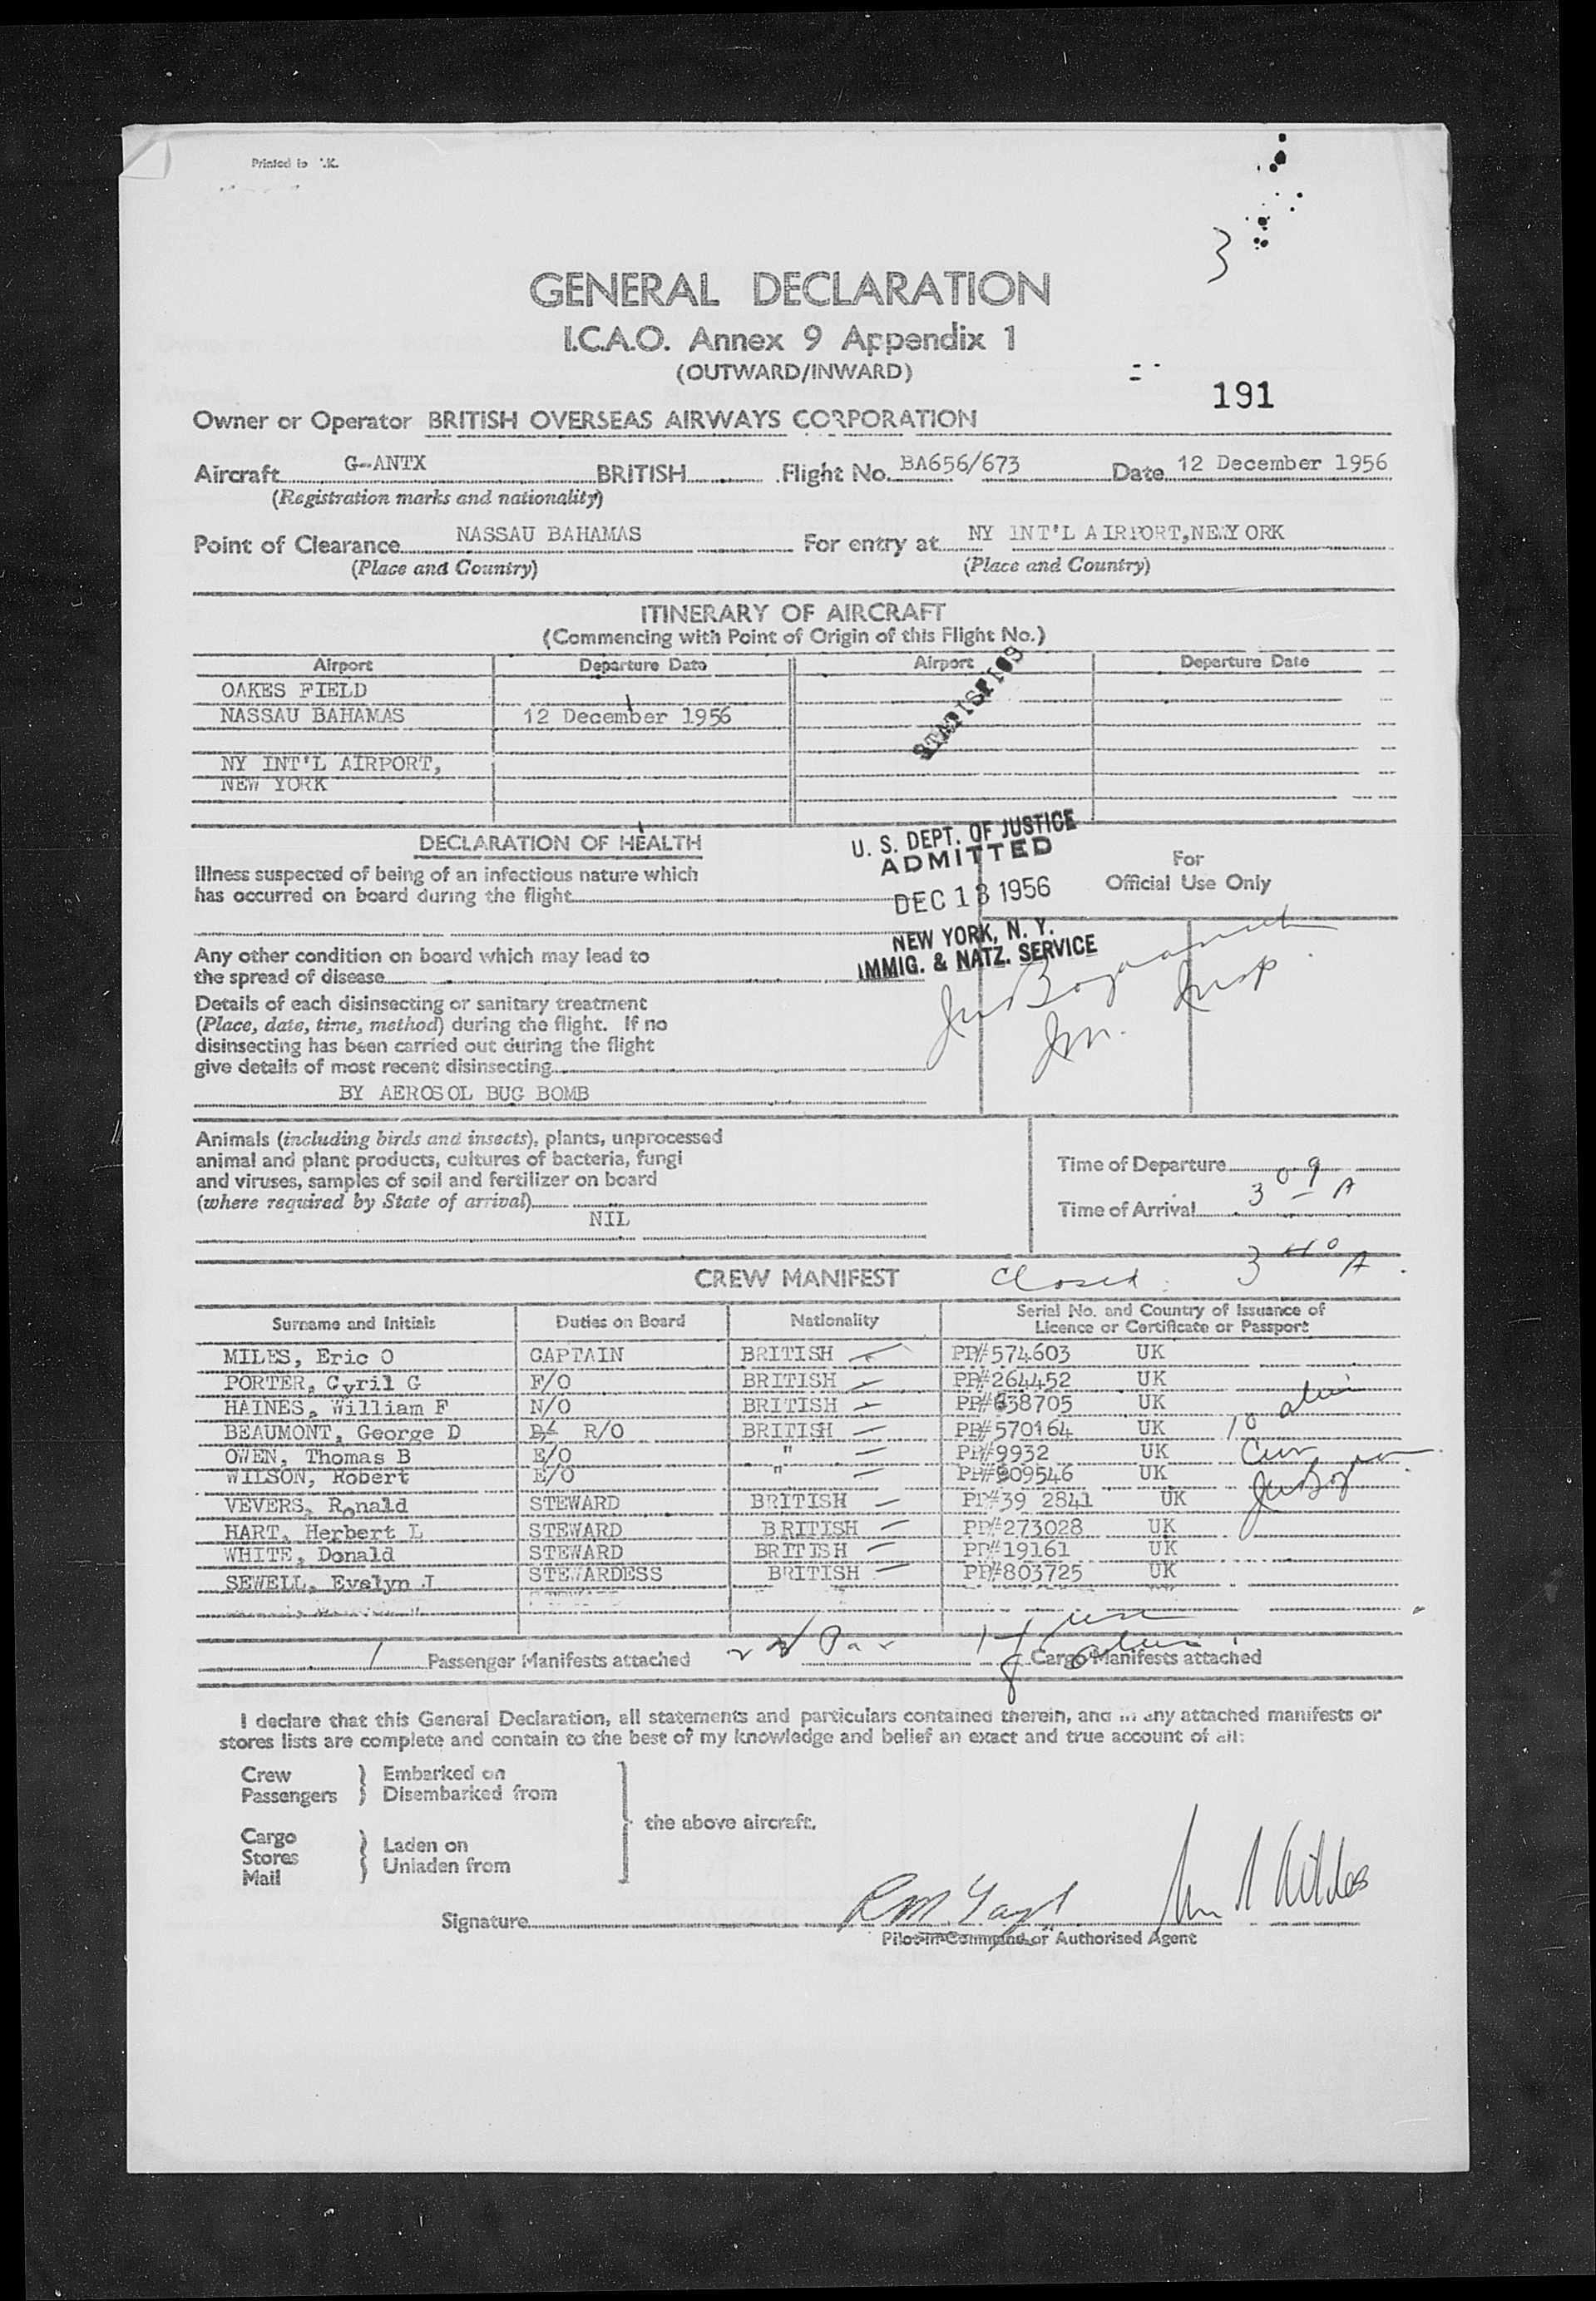 Printed in U.K.
3
GENERAL DECLARATION
I.C.A.O. Annex 9 Appendix 1
(OUTWARD/INWARD)
191
Owner or Operator BRITISH OVERSEAS AIRWAYS CORPORATION
Aircraft G-ANTX BRITISH Flight No. BA656/673 Date 12 December 1956
(Registration marks and nationality)
Point of Clearance NASSAU BAHAMAS For entry at NY INT'L AIRPORT,NEWYORK
(Place and Country) (Place and Country)
ITINERARY OF AIRCRAFT
(Commencing with Point of Origin of this Flight No.)
Airport Departure Date Airport Departure Date
OAKES FIELD
NASSAU BAHAMAS 12 December 1956
NY INT'L AIRPORT,
NEW YORK
DECLARATION OF HEALTH
U. S. DEPT. OF JUSTICE
ADMITTED
DEC 13 1956
NEW YORK, N. Y.
IMMIG. & NATZ. SERVICE
For
Official Use Only
Illness suspected of being of an infectious nature which
has occurred on board during the flight
Any other condition on board which may lead to
the spread of disease
Details of each disinsecting or sanitary treatment
(Place, date, time, method) during the flight. If no
disinsecting has been carried out during the flight
give details of most recent disinsecting
BY AEROSOL BUG BOMB
Animals (including birds and insects), plants, unprocessed
animal and plant products, cultures of bacteria, fungi
and viruses, samples of soil and fertilizer on board
(where required by State of arrival)
NIL
Time of Departure
Time of Arrival 3 09 A
CREW MANIFEST Closed: 3 40 A.
Surname and Initials Duties on Board Nationality Serial No. and Country of Issuance of
Licence or Certificate or Passport
MILES, Eric O CAPTAIN BRITISH PP#574603 UK
PORTER, Cyril G F/O BRITISH PP#264452 UK
HAINES, William F N/O BRITISH PP#638705 UK
BEAUMONT, George D R/O BRITISH PP#570164 UK
OWEN, Thomas B E/O " PP#9932 UK
WILSON, Robert E/O " PP#909546 UK
VEVERS, Ronald STEWARD BRITISH PP#39 2841 UK
HART, Herbert L STEWARD BRITISH PP#273028 UK
WHITE, Donald STEWARD BRITISH PP#19161 UK
SEWELL, Evelyn J STEWARDESS BRITISH PP#803725 UK
1 Passenger Manifests attached Pax Cargo Manifests attached
I declare that this General Declaration, all statements and particulars contained therein, and in any attached manifests or
stores lists are complete and contain to the best of my knowledge and belief an exact and true account of all:
Crew Embarked on
Passengers Disembarked from
the above aircraft.
Cargo
Stores Laden on
Mail Unladen from
Signature
Pilot-in-Command or Authorised Agent